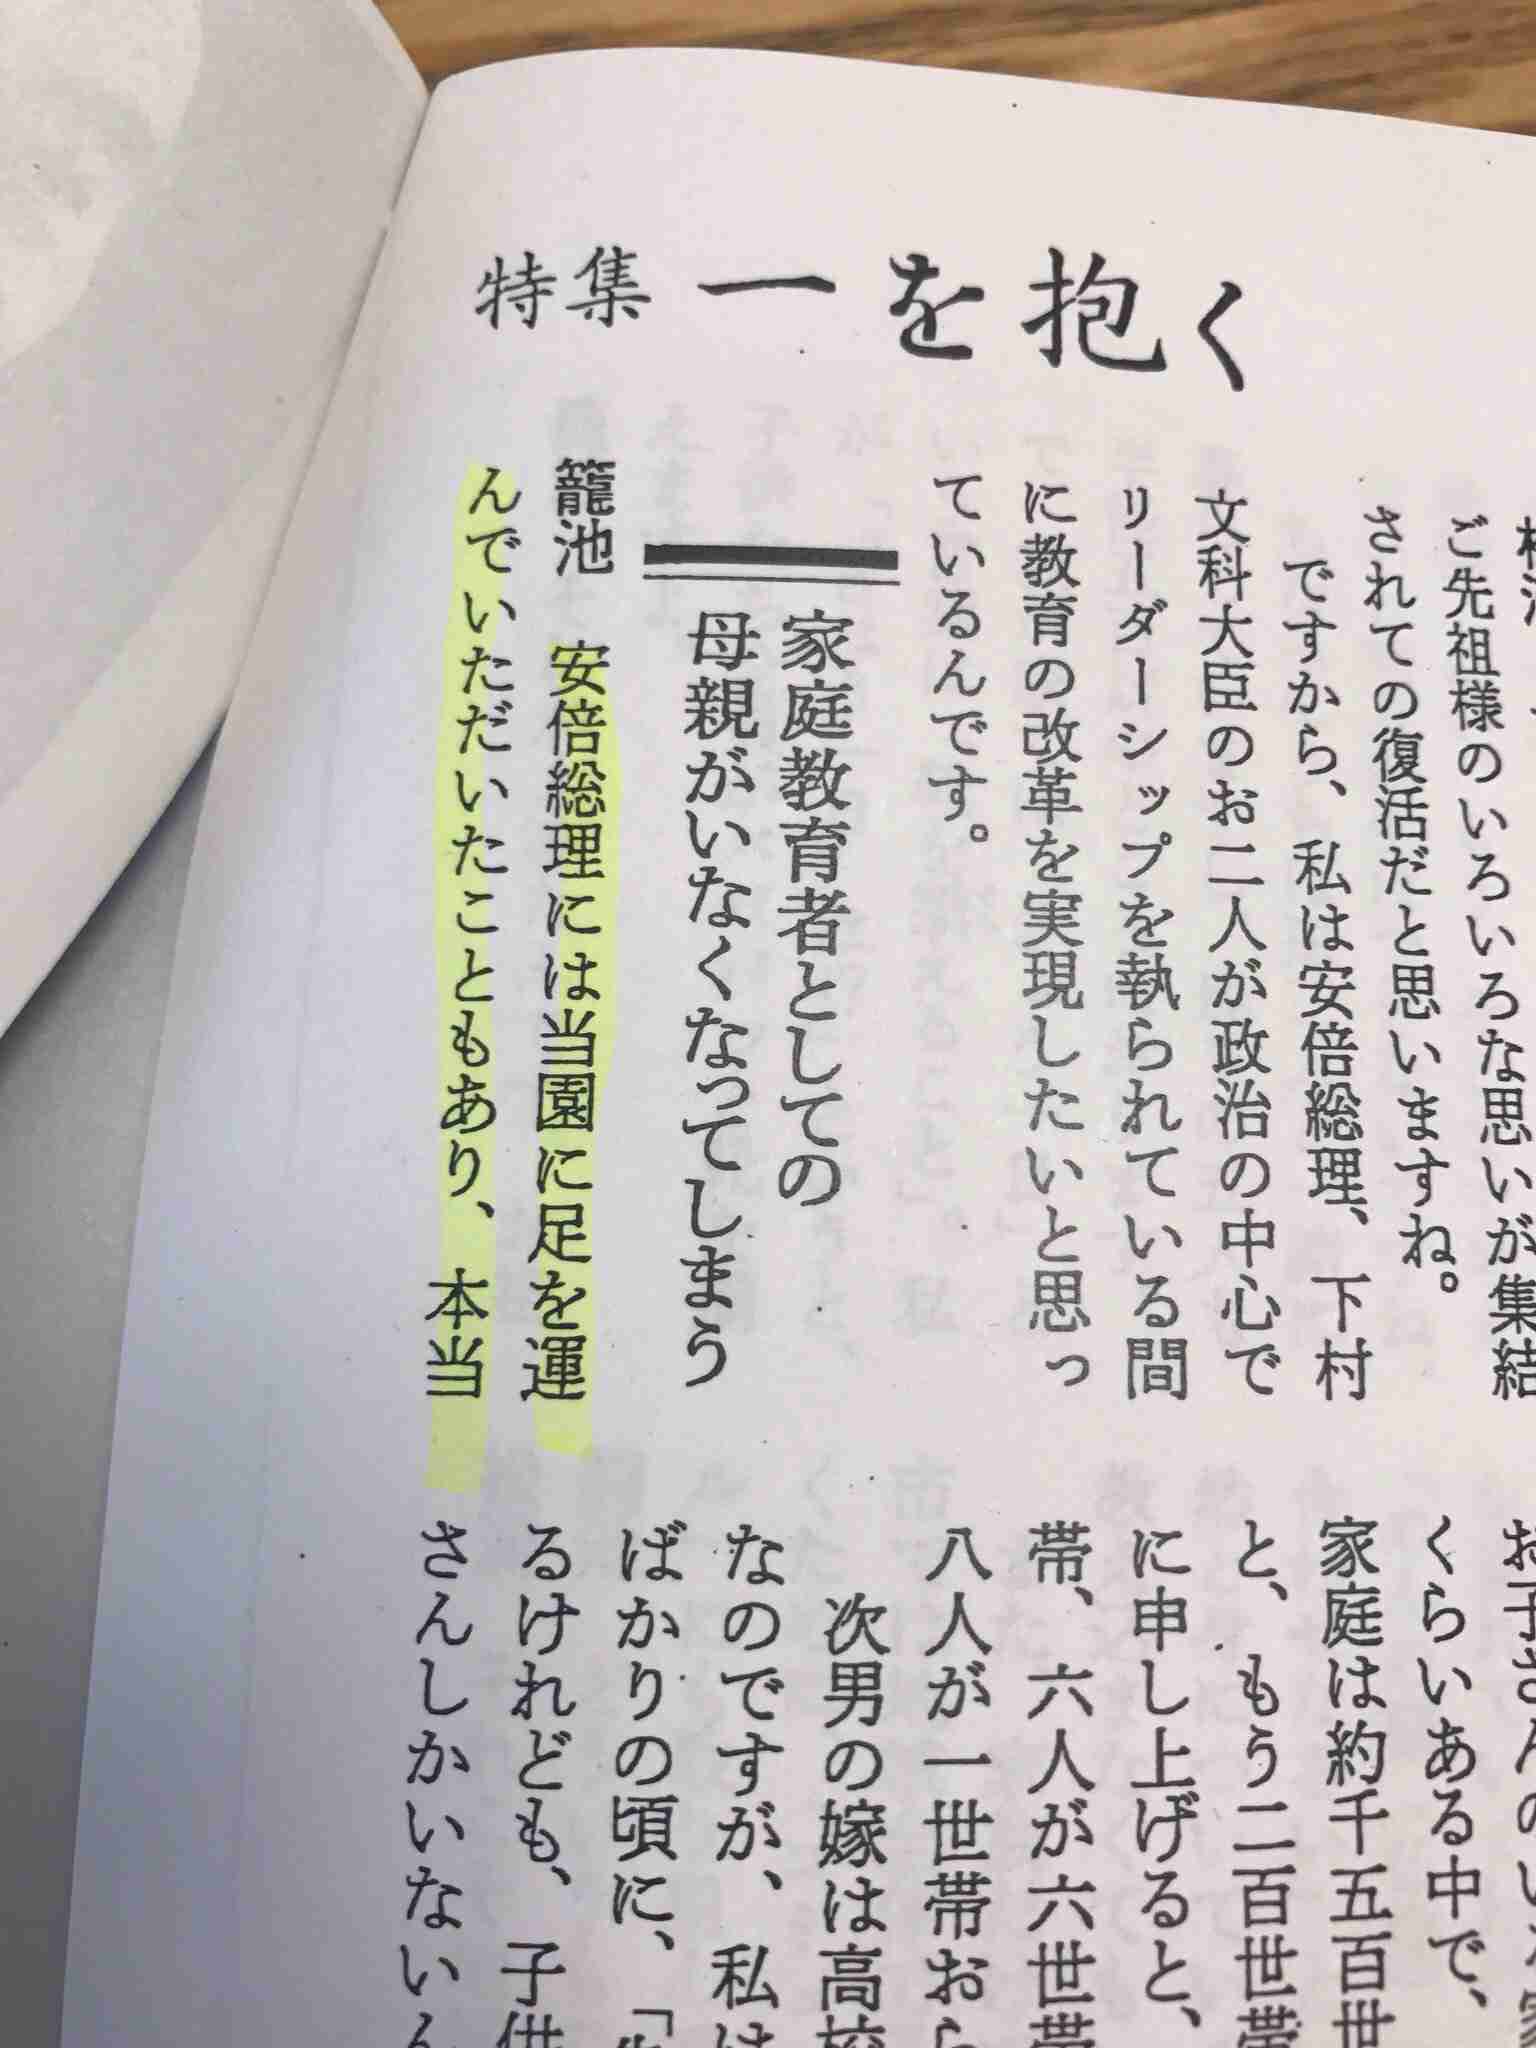 特集 一を抱く
ご先祖様のいろいろな思いが集結
されての復活だと思いますね。
ですから、私は安倍総理、下村
文科大臣のお二人が政治の中心で
リーダーシップを執られている間
に教育の改革を実現したいと思っ
ているんです。
家庭教育者としての
母親がいなくなってしまう
籠池 安倍総理には当園に足を運
んでいただいたこともあり、本当
くらいある中で、
家庭は約千五百世
と、もう二百世帯
に申し上げると、
帯、六人が六世帯
八人が一世帯おら
次男の嫁は高校
なのですが、私は
ばかりの頃に、「
るけれども、子供
さんしかいないん